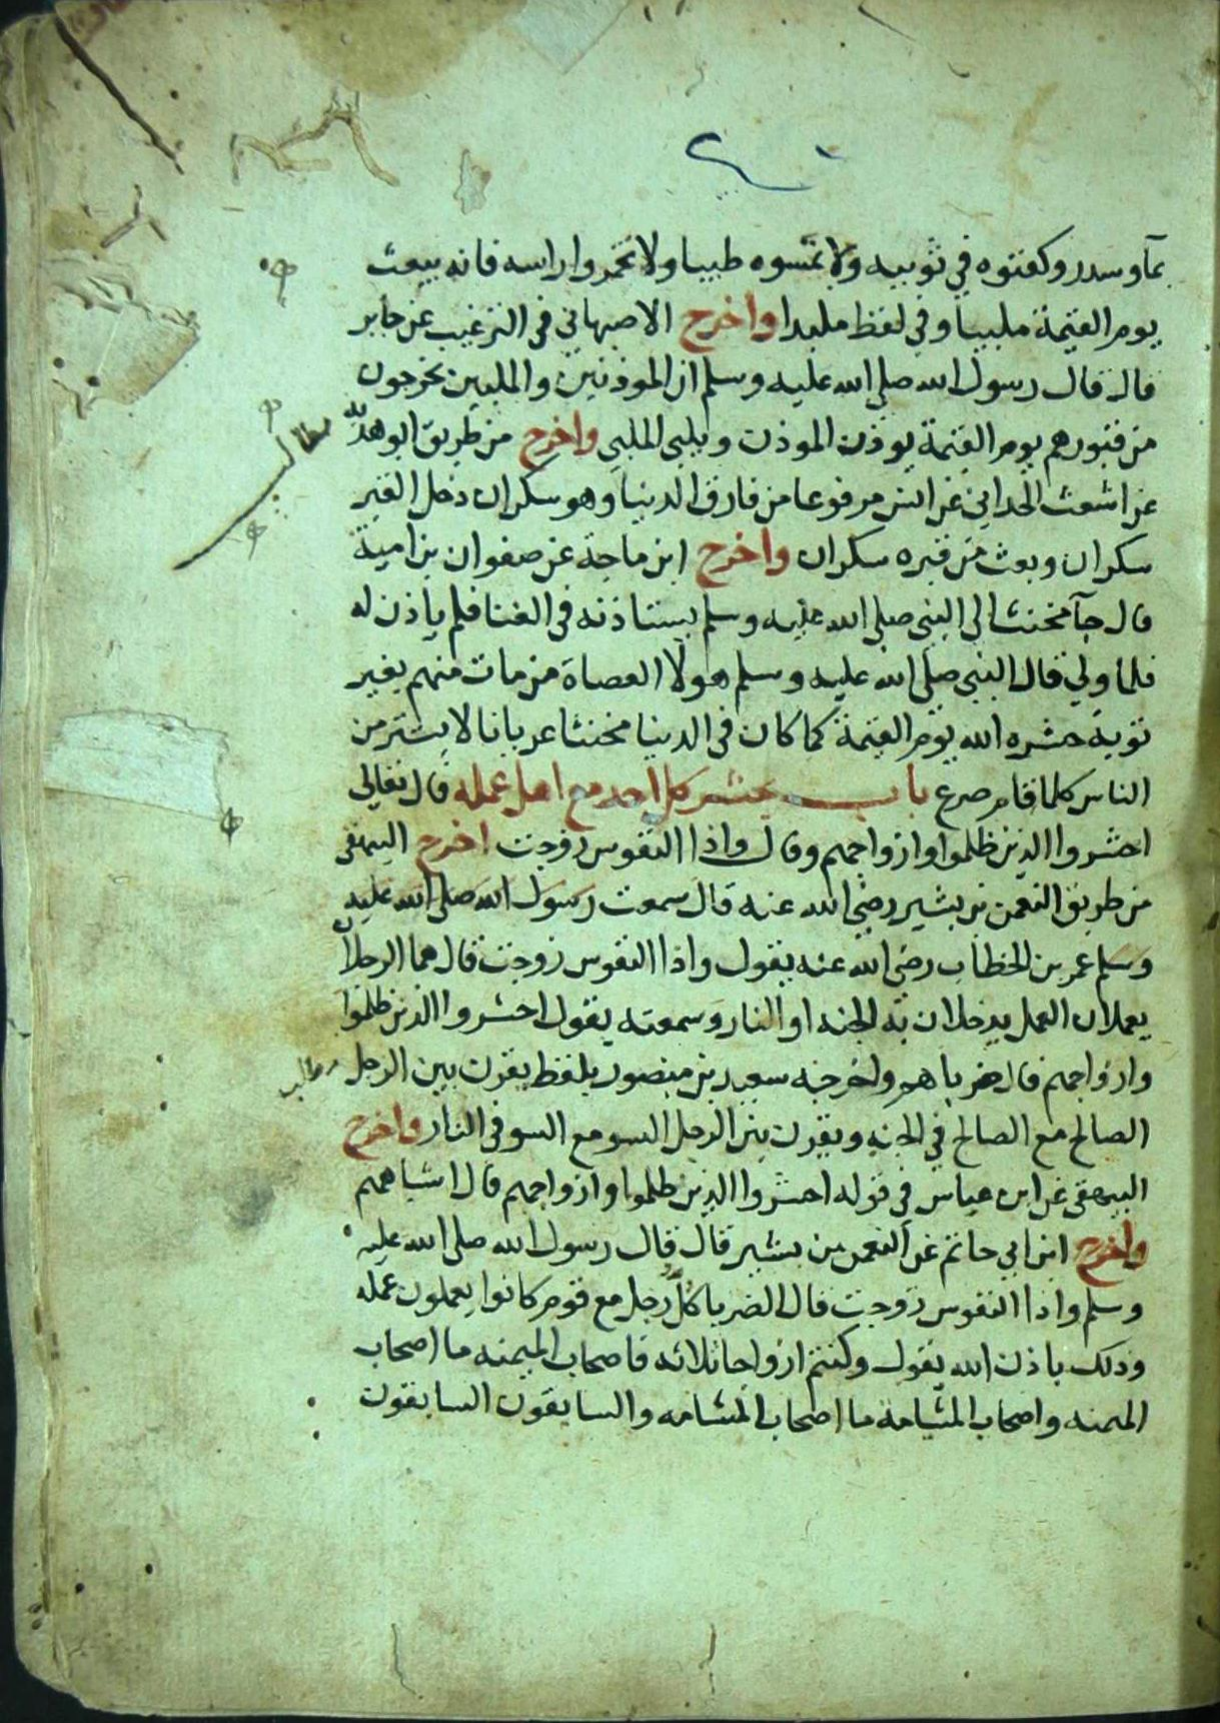 بمآ وسدر وكفنوه في ثوبيه ولا تمسوه طيبا ولا تخمروا راسه فانه يبعث
يوم القيمة ملبيا وفي لفظ ملبدا واخرج الاصبهاني في الترغيب عن جابر
قال قال رسول الله صلى الله عليه وسلم ان الموذنين والملبين يخرجون
من قبورهم يوم القيمة يوذن الموذن ويلبي الملبي واخرج من طريق ابو هدبه
عن اشعث الحداني عن انس مرفوعا من فارق الدنيا وهو سكران دخل القبر
سكران وبعث من قبره سكران واخرج ابن ماجة عن صفوان بن امية
قال جآ مخنث الى النبي صلى الله عليه وسلم يستاذنه في الغنا فلم ياذن له
فلما ولي قال النبي صلى الله عليه وسلم هولا العصاة من مات منهم بغير
توبة حشره الله يوم القيمة كما كان في الدنيا مخنثا عريانا لا يستتر من
الناس كلما قام صرع باب يحشر كل احد مع اهل عمله قال تعالى
احشروا الذين ظلموا وازواجهم وقال واذا النفوس زوجت اخرج البيهقي
من طريق النعمن بن بشير رضي الله عنه قال سمعت رسول الله صلى الله عليه
وسلم عمر بن الخطاب رضي الله عنه يقول واذا النفوس زوجت قال هما الرجلان
يعملان العمل يدخلان به الجنه او النار وسمعته يقول احشروا الذين ظلموا
وازواجهم قال ضرباهم واخرجه سعيد بن منصور بلفظ يقرن بين الرجل
الصالح مع الصالح في الجنه ويقرن بين الرجل السو مع السو في النار واخرج
البيهقي عن ابن عباس في قوله احشروا الذين ظلموا وازواجهم قال اشباههم
واخرج ابن ابي حاتم عن النعمن بن بشير قال قال رسول الله صلى الله عليه
وسلم واذا النفوس زوجت قال الضربا كل رجل مع قوم كانوا يعملون عمله
وذلك باذن الله يقول وكنتم ازواجا ثلاثه فاصحاب الميمنه ما اصحاب
الميمنه واصحاب المشامه ما اصحاب المشامه والسابقون السابقون